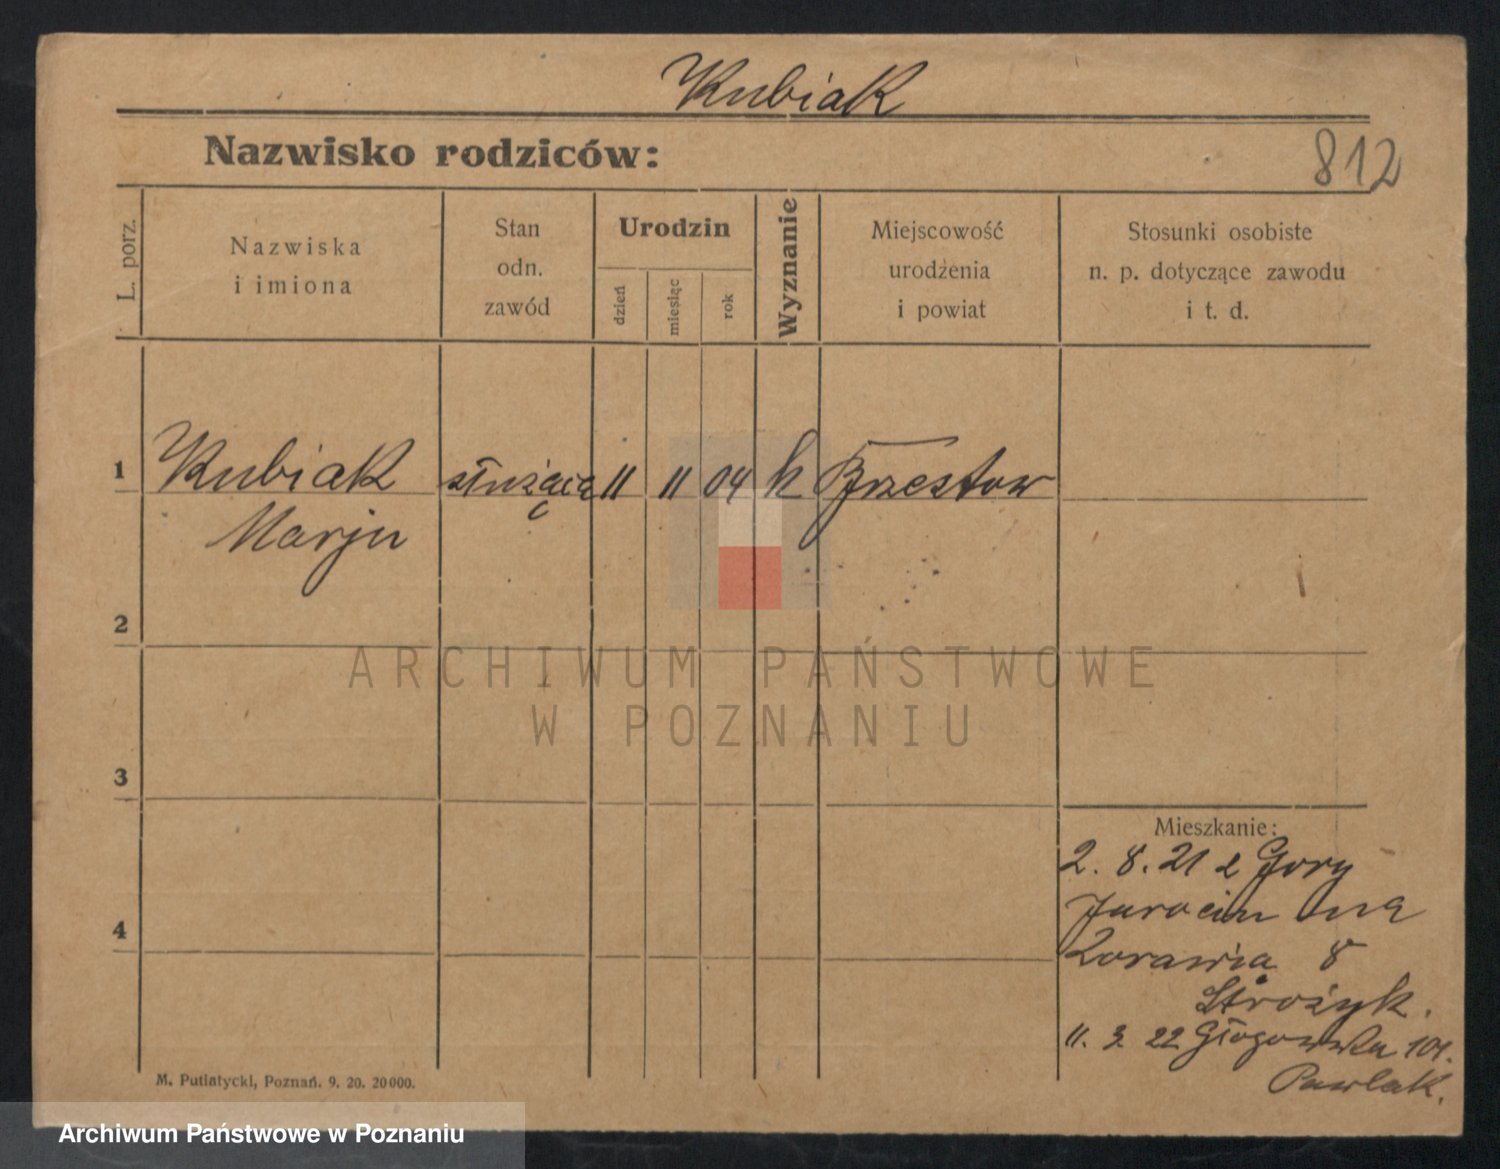 Kubiak
Nazwisko rodziców:
812
L. porz.
Nazwiska
i imiona
Stan
odn.
zawód
Urodzin
dzień
miesiąc
rok
Wyznanie
Miejscowość
urodzenia
i powiat
Stosunki osobiste
n. p. dotyczące zawodu
i t. d.
1
Kubiak służąca 11 11 04 k Brzestow
Marja
2
ARCHIWUM PAŃSTWOWE
W POZNANIU
3
Mieszkanie:
2. 8. 21 z Gory
Jarocin na
4
8
Strożyk.
11. 3. 22 Głogowska 101.
Pawlak.
M. Putiatycki, Poznań. 9. 20. 20000.
Archiwum Państwowe w Poznaniu